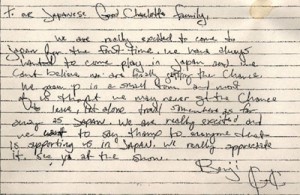 To our Japanese Good Charlotte family,
We are really excited to come to
Japan for the first time. We have always
wanted to come play in Japan and we
cant believe we are finally getting the chance.
We grew up in a small town and most
of us thought we may never get the chance
to leave, let alone travel somewhere as far
away as Japan. We are really excited and
we want to say thanks to everyone that
is supporting us in Japan. We really appreciate
it. See ya at the show.
Benji GC